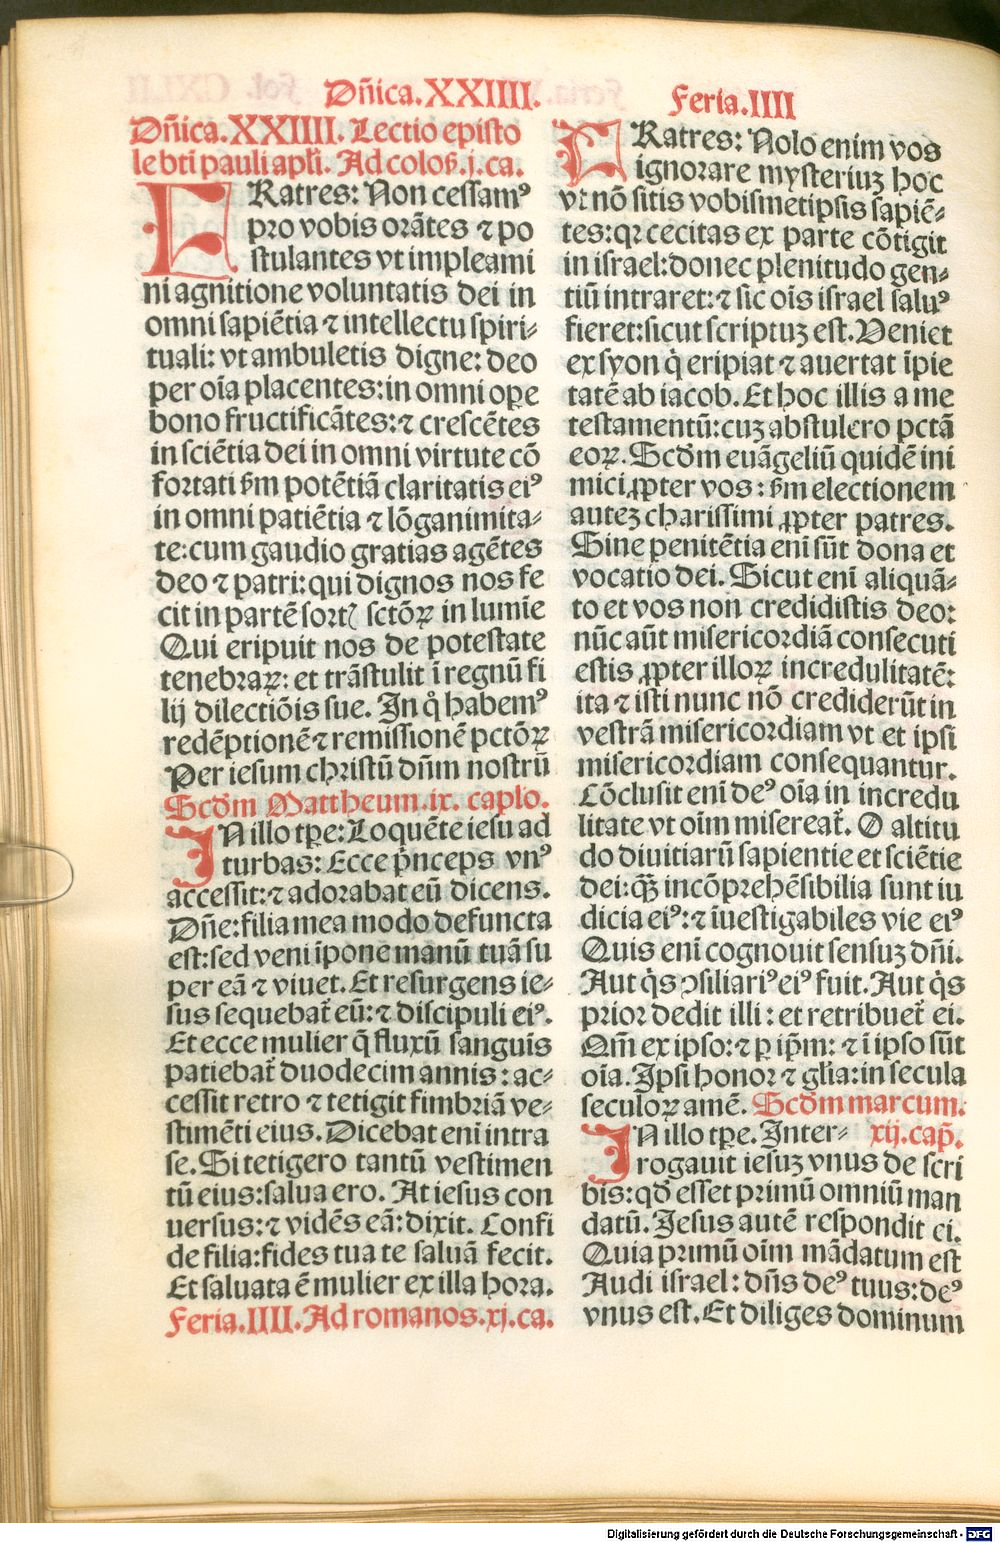 Dñica.XXIIII.
Feria.IIII
Dñica.XXIIII. Lectio episto
le btĩ pauli apłi. Ad colos̃.j.ca.
FRatres: Non cessamꝰ
pro vobis orãtes ⁊ po
stulantes vt impleami
ni agnitione voluntatis dei in
omni sapiẽtia ⁊ intellectu spiri⸗
tuali: vt ambuletis digne: deo
per oĩa placentes: in omni oꝑe
bono fructificãtes: ⁊ crescẽtes
in sciẽtia dei in omni virtute cõ
fortati ẜm potẽtiã claritatis eiꝰ
in omni patiẽtia ⁊ lõganimita⸗
te: cum gaudio gratias agẽtes
deo ⁊ patri: qui dignos nos fe
cit in partẽ sortꝭ sctõꝝ in lumĩe
Qui eripuit nos de potestate
tenebraꝝ: et trãstulit ĩ regnũ fi
lij dilectiõis sue. In qͦ habemꝰ
redẽptionẽ ⁊ remissionẽ pctõꝝ
Per iesum christũ dñm nostrũ
Scđm Mattheum.ix. caplo.
IN illo tꝑe: Loquẽte iesu ad
turbas: Ecce p̃nceps vnꝰ
accessit: ⁊ adorabat eũ dicens.
Dñe: filia mea modo defuncta
est: sed veni ĩpone manũ tuã su
per eã ⁊ viuet. Et resurgens ie⸗
sus sequebat᷑ eũ: ⁊ discipuli eiꝰ.
Et ecce mulier q̃ fluxũ sanguis
patiebat᷑ duodecim annis: ac⸗
cessit retro ⁊ tetigit fimbriã ve⸗
stimẽti eius. Dicebat enĩ intra
se. Si tetigero tantũ vestimen
tũ eius: salua ero. At iesus con
uersus: ⁊ vidẽs eã: dixit. Confi
de filia: fides tua te saluã fecit.
Et saluata ẽ mulier ex illa hora.
Feria.IIII. Ad romanos.xj.ca.
FRatres: Nolo enim vos
ignorare mysteriuꝫ hoc
vt nõ sitis vobismetipsis sapiẽ⸗
tes: qꝛ cecitas ex parte cõtigit
in israel: donec plenitudo gen⸗
tiũ intraret: ⁊ sic oĩs israel saluꝰ
fieret: sicut scriptuꝫ est. Veniet
ex syon q̇ eripiat ⁊ auertat ĩpie
tatẽ ab iacob. Et hoc illis a me
testamentũ: cuꝫ abstulero pctã
eoꝝ. Scđm euãgeliũ quidẽ ini
mici ꝓpter vos: ẜm electionem
auteꝫ charissimi ꝓpter patres.
Sine penitẽtia enĩ sũt dona et
vocatio dei. Sicut enĩ aliquã⸗
to et vos non credidistis deo:
nũc aũt misericordiã consecuti
estis ꝓpter illoꝝ incredulitatẽ:
ita ⁊ isti nunc nõ crediderũt in
vestrã misericordiam vt et ipsi
misericordiam consequantur.
Cõclusit enĩ deꝰ oĩa in incredu
litate vt oĩm misereat᷑. O altitu
do diuitiarũ sapientie et sciẽtie
dei: q̃ꝫ incõprehẽsibilia sunt iu
dicia eiꝰ: ⁊ ĩuestigabiles vie eiꝰ
Quis enĩ cognouit sensuꝫ dñi.
Aut q̇s ꝯsiliariꝰ eiꝰ fuit. Aut q̇s
prior dedit illi: et retribuet᷑ ei.
Qm̃ ex ipso: ⁊ ꝑ ip̃m: ⁊ ĩ ipso sũt
oĩa. Ipsi honor ⁊ glĩa: in secula
seculoꝝ amẽ. Scđm marcum.
IN illo tꝑe. Inter⸗ xij.cap̃.
rogauit iesuꝫ vnus de scri
bis: qđ esset primũ omniũ man
datũ. Iesus autẽ respondit ei.
Quia primũ oĩm mãdatum est
Audi israel: dñs deꝰ tuus: deꝰ
vnus est. Et diliges dominum
Digitalisierung gefördert durch die Deutsche Forschungsgemeinschaft - DFG